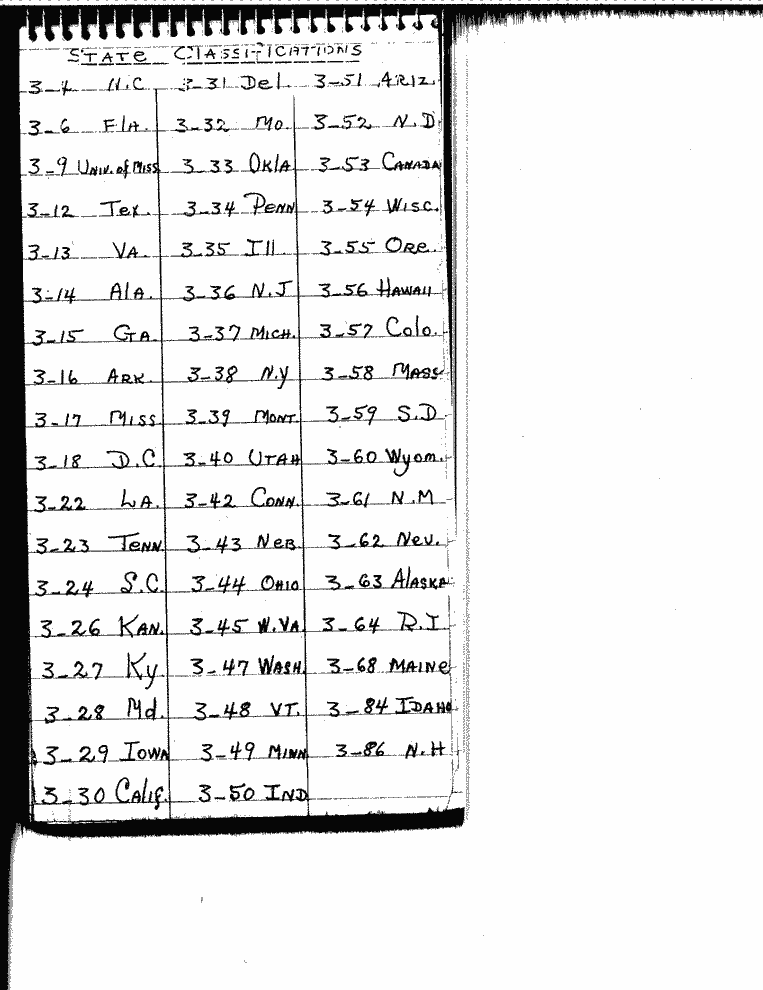 STATE CLASSIFICATIONS
3-4 N.C 3-31 Del. 3-51 ARIZ.
3-6 FlA. 3-32 Mo. 3-52 N.D
3-9 UNIV. of MISS 3-33 OklA 3-53 CANADA
3-12 Tex. 3-34 PENN 3-54 WISC.
3-13 VA. 3-35 Ill 3-55 ORe.
3-14 AlA. 3-36 N.J 3-56 HAWAII
3-15 GA. 3-37 MICH. 3-57 Colo.
3-16 ARK. 3-38 N.Y 3-58 MASS
3-17 MISS 3-39 MONT. 3-59 S.D
3-18 D.C 3-40 UTAH 3-60 Wyom.
3-22 LA. 3-42 CONN. 3-61 N.M
3-23 TENN 3-43 NeB. 3-62 Nev.
3-24 S.C. 3-44 OHIO 3-63 AlASKA
3-26 KAN. 3-45 W.VA 3-64 R.I
3-27 Ky 3-47 WASH. 3-68 MAINe
3-28 Md. 3-48 VT. 3-84 IDAHO
3-29 IOWA 3-49 MINN 3-86 N.H
3-30 CAlif. 3-50 IND